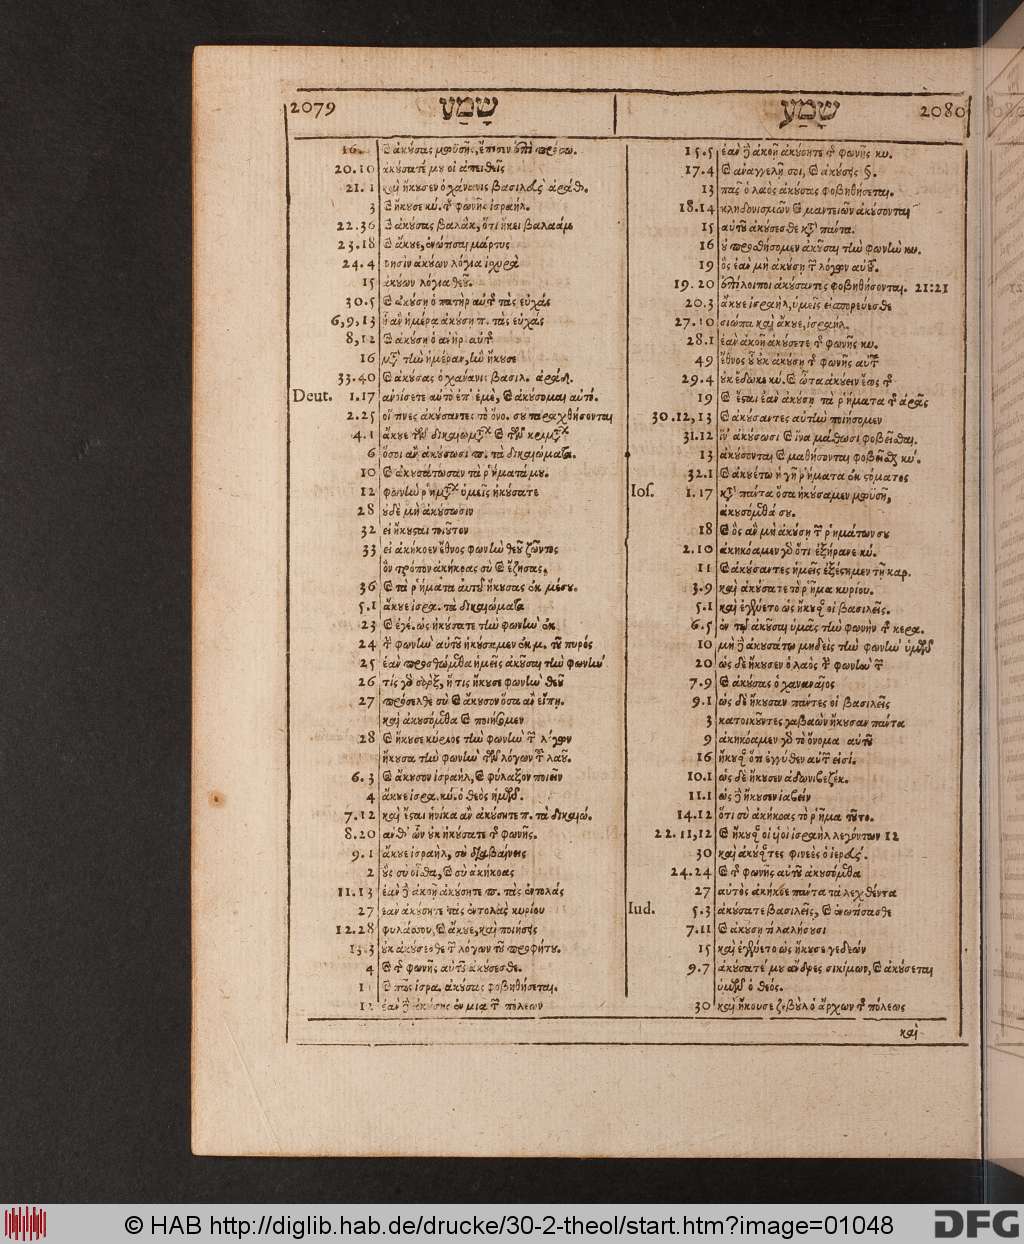 2079 שָׁמַע
שָׁמַע 2080
16. Ϗ ἀκούσας μωϋσῆς, ἔπεσεν ἐπὶ πρόσω.
20.10 ἀκούσατέ μου οἱ ἀπειθεῖς
21.1 καὶ ἤκουσεν ὁ χάνανις βασιλεὺς ἀράδ.
3 Ϗ ἤκουσε κύ. τ φωνῆς ἰσραήλ.
22.36 Ϗ ἀκούσας βαλὰκ, ὅτι ἥκει βαλαάμ
23.18 Ϗ ἄκουε, ἐνώτισαι μάρτυς
24.4 φησὶν ἀκούων λόγια ἰσχυρὰ
15 ἀκούων λόγια θεοῦ.
30.5 Ϗ ἀκούσῃ ὁ πατὴρ αὐτ τὰς εὐχάς
6,9,13 ᾗ ἂν ἡμέρᾳ ἀκούσῃ π. τὰς εὐχάς
8,12 Ϗ ἀκούσῃ ὁ ἀνὴρ αὐτ
16 μετὰ τὴν ἡμέραν, ἣν ἤκουσε
33.40 Ϗ ἀκούσας ὁ χάνανις βασιλ. ἀράδ.
Deut. 1.17 ἀνοίσετε αὐτὸ ἐπ' ἐμὲ, Ϗ ἀκούσομαι αὐτό.
2.25 οἵ τινες ἀκούσαντες τὸ ὄνο. σου ταραχθήσονται
4.1 ἄκουε τῶν δικαιωμάτων Ϗ τῶν κριμάτων
6 ὅσοι ἂν ἀκούσωσι π. τὰ δικαιώματα.
10 Ϗ ἀκουσάτωσαν τὰ ῥήματά μου.
12 φωνὴν ῥημάτων ὑμεῖς ἠκούσατε
28 οὐδὲ μὴ ἀκούσωσιν
32 εἰ ἤκουσται τοιοῦτον
33 εἰ ἀκήκοεν ἔθνος φωνὴν θεοῦ ζῶντος
ὃν τρόπον ἀκήκοας σὺ Ϗ ἔζησας.
36 Ϗ τὰ ῥήματα αὐτοῦ ἤκουσας ἐκ μέσου.
5.1 ἄκουε ἰσρα. τὰ δικαιώματα
23 Ϗ ἐγέ. ὡς ἠκούσατε τὴν φωνὴν ἐκ
24 τ φωνὴν αὐτοῦ ἠκούσαμεν ἐκ μ. τοῦ πυρός
25 ἐὰν προσθώμεθα ἡμεῖς ἀκοῦσαι τὴν φωνὴν
26 τίς γὰρ σὰρξ, ἥ τις ἤκουσε φωνὴν θεοῦ
27 πρόσελθε σὺ Ϗ ἄκουσον ὅσα ἂν εἴπῃ.
καὶ ἀκουσόμεθα Ϗ ποιήσομεν
28 Ϗ ἤκουσε κύριος τὴν φωνὴν τ λόγων
ἤκουσα τὴν φωνὴν τῶν λόγων τ λαοῦ.
6.3 Ϗ ἄκουσον ἰσραὴλ, Ϗ φύλαξον ποιεῖν
4 ἄκουε ἰσρα. κύ. ὁ θεὸς ἡμῶν.
7.12 καὶ ἔσται ἡνίκα ἂν ἀκούσητε π. τὰ δικαιώ.
8.20 ἀνθ' ὧν οὐκ ἠκούσατε τ φωνῆς.
9.1 ἄκουε ἰσραὴλ, σὺ διαβαίνεις
2 οὓς σὺ οἶσθα, Ϗ σὺ ἀκήκοας
11.13 ἐὰν δὲ ἀκοῇ ἀκούσητε π. τὰς ἐντολάς
27 ἐὰν ἀκούσητε τὰς ἐντολὰς κυρίου
12.28 φυλάσσου, Ϗ ἄκουε, καὶ ποιήσεις
13.3 οὐκ ἀκούσεσθε τ λόγων τοῦ προφήτου.
4 Ϗ τ φωνῆς αὐτοῦ ἀκούσεσθε.
11 Ϗ πᾶς ἰσρα. ἀκούσας φοβηθήσεται.
12 ἐὰν δὲ ἀκούσῃς ἐν μιᾷ τ πόλεων
15.5 ἐὰν δὲ ἀκοῇ ἀκούσητε τ φωνῆς κυ.
17.4 Ϗ ἀναγγελῇ σοι, Ϗ ἀκούσῃς §.
13 πᾶς ὁ λαὸς ἀκούσας φοβηθήσεται.
18.14 κληδονισμῶν Ϗ μαντειῶν ἀκούσονται
15 αὐτοῦ ἀκούσεσθε κατὰ πάντα.
16 οὐ προσθήσομεν ἀκοῦσαι τὴν φωνὴν κυ.
19 ὃς ἐὰν μὴ ἀκούσῃ τ λόγων αὐτ.
19.20 ἐπίλοιποι ἀκούσαντες φοβηθήσονται. 21:21
20.3 ἄκουε ἰσραὴλ, ὑμεῖς εἰσπορεύεσθε
27.10 σιώπα καὶ ἄκουε, ἰσραήλ.
28.1 ἐὰν ἀκοῇ ἀκούσετε τ φωνῆς κυ.
49 ἔθνος οὗ οὐκ ἀκούσῃ τ φωνῆς αὐτ
29.4 οὐκ ἔδωκε κύ. Ϗ ὦτα ἀκούειν ἕως τ
19 Ϗ ἔσται ἐὰν ἀκούσῃ τὰ ῥήματα τ ἀρᾶς
30.12,13 Ϗ ἀκούσαντες αὐτὴν ποιήσομεν
31.12 ἵν' ἀκούσωσι Ϗ ἵνα μάθωσι φοβεῖσθαι.
13 ἀκούσονται Ϗ μαθήσονται φοβεῖσθαι κύ.
32.1 Ϗ ἀκουέτω ἡ γῆ ῥήματα ἐκ στόματος
Ios. 1.17 κατὰ πάντα ὅσα ἠκούσαμεν μωϋσῆ,
ἀκουσόμεθά σου.
18 Ϗ ὃς ἂν μὴ ἀκούσῃ τ ῥημάτων σου
2.10 ἀκηκόαμεν γὰρ ὅτι ἐξήρανε κύ.
11 Ϗ ἀκούσαντες ἡμεῖς ἐξέστημεν τῇ καρ.
3.9 καὶ ἀκούσατε τὸ ῥῆμα κυρίου.
5.1 καὶ ἐγένετο ὡς ἤκουσαν οἱ βασιλεῖς.
6.5 ἐν τῷ ἀκοῦσαι ὑμᾶς τὴν φωνὴν τ κερα.
10 μὴ δὲ ἀκουσάτω μηδεὶς τὴν φωνὴν ὑμῶν
20 ὡς δὲ ἤκουσεν ὁ λαὸς τ φωνὴν τ
7.9 Ϗ ἀκούσας ὁ χαναναῖος
9.1 ὡς δὲ ἤκουσαν πάντες οἱ βασιλεῖς
3 κατοικοῦντες γαβαὼν ἤκουσαν πάντα
9 ἀκηκόαμεν γὰρ τὸ ὄνομα αὐτοῦ
16 ἤκουσαν ὅτι ἐγγύθεν αὐτ εἰσί.
10.1 ὡς δὲ ἤκουσεν ἀδωνιβεζέκ.
11.1 ὡς δὲ ἤκουσεν ἰαβεὶν
14.12 ὅτι σὺ ἀκήκοας τὸ ῥῆμα τοῦτο.
22.11,12 Ϗ ἤκουσαν οἱ υἱοὶ ἰσραὴλ λεγόντων 12
30 καὶ ἀκούσαντες φινεὲς ὁ ἱερεὺς.
24.24 Ϗ τ φωνῆς αὐτοῦ ἀκουσόμεθα
27 αὐτὸς ἀκήκοε πάντα τὰ λεχθέντα
Iud. 5.3 ἀκούσατε βασιλεῖς, Ϗ ἐνωτίσασθε
7.11 Ϗ ἀκούσῃ τί λαλήσουσι
15 καὶ ἐγένετο ὡς ἤκουσε γεδεὼν
9.7 ἀκούσατέ μου ἄνδρες σικίμων, Ϗ ἀκούσεται
ὑμῶν ὁ θεός.
30 καὶ ἤκουσε ζεβοὺλ ὁ ἄρχων τ πόλεως
καὶ
© HAB http://diglib.hab.de/drucke/30-2-theol/start.htm?image=01048
DFG